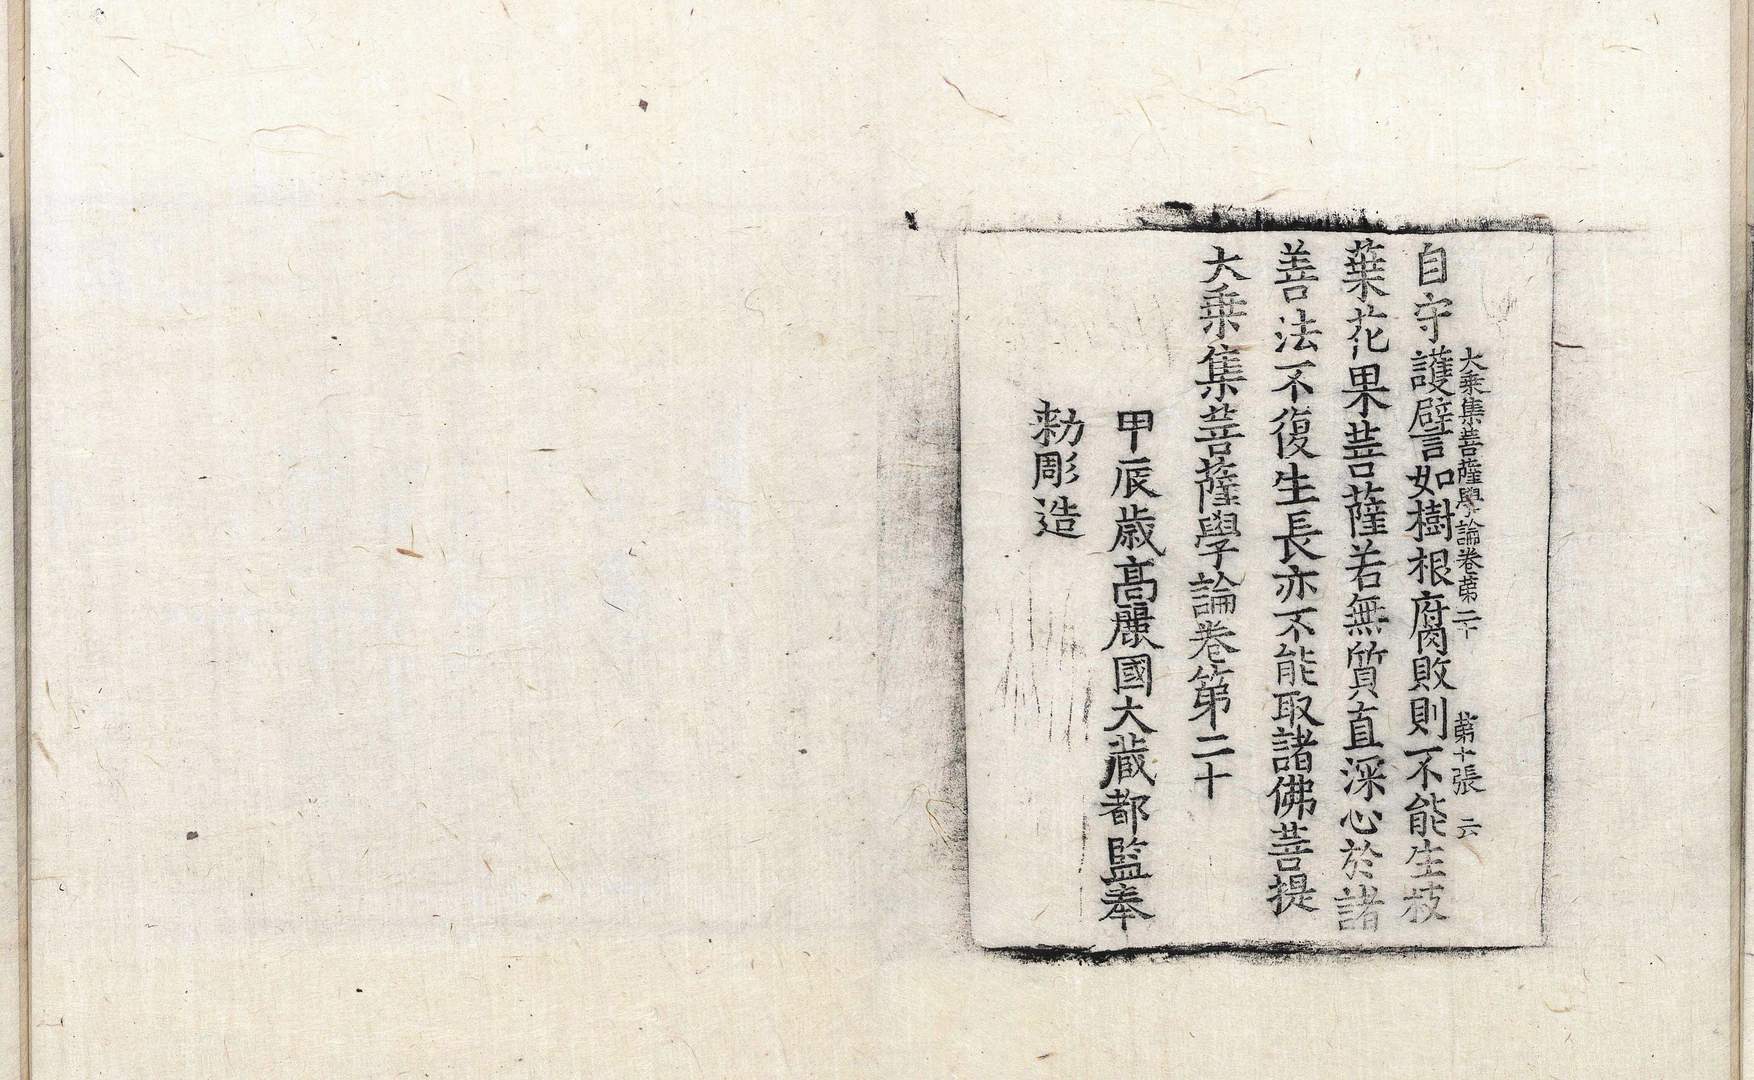 大乘集菩薩學論卷第二十　第十張　云
自守護譬如樹根腐敗則不能生枝
葉花果菩薩若無質直深心於諸
善法不復生長亦不能取諸佛菩提
大乘集菩薩學論卷第二十
甲辰歲髙麗國大藏都監奉
勅彫造